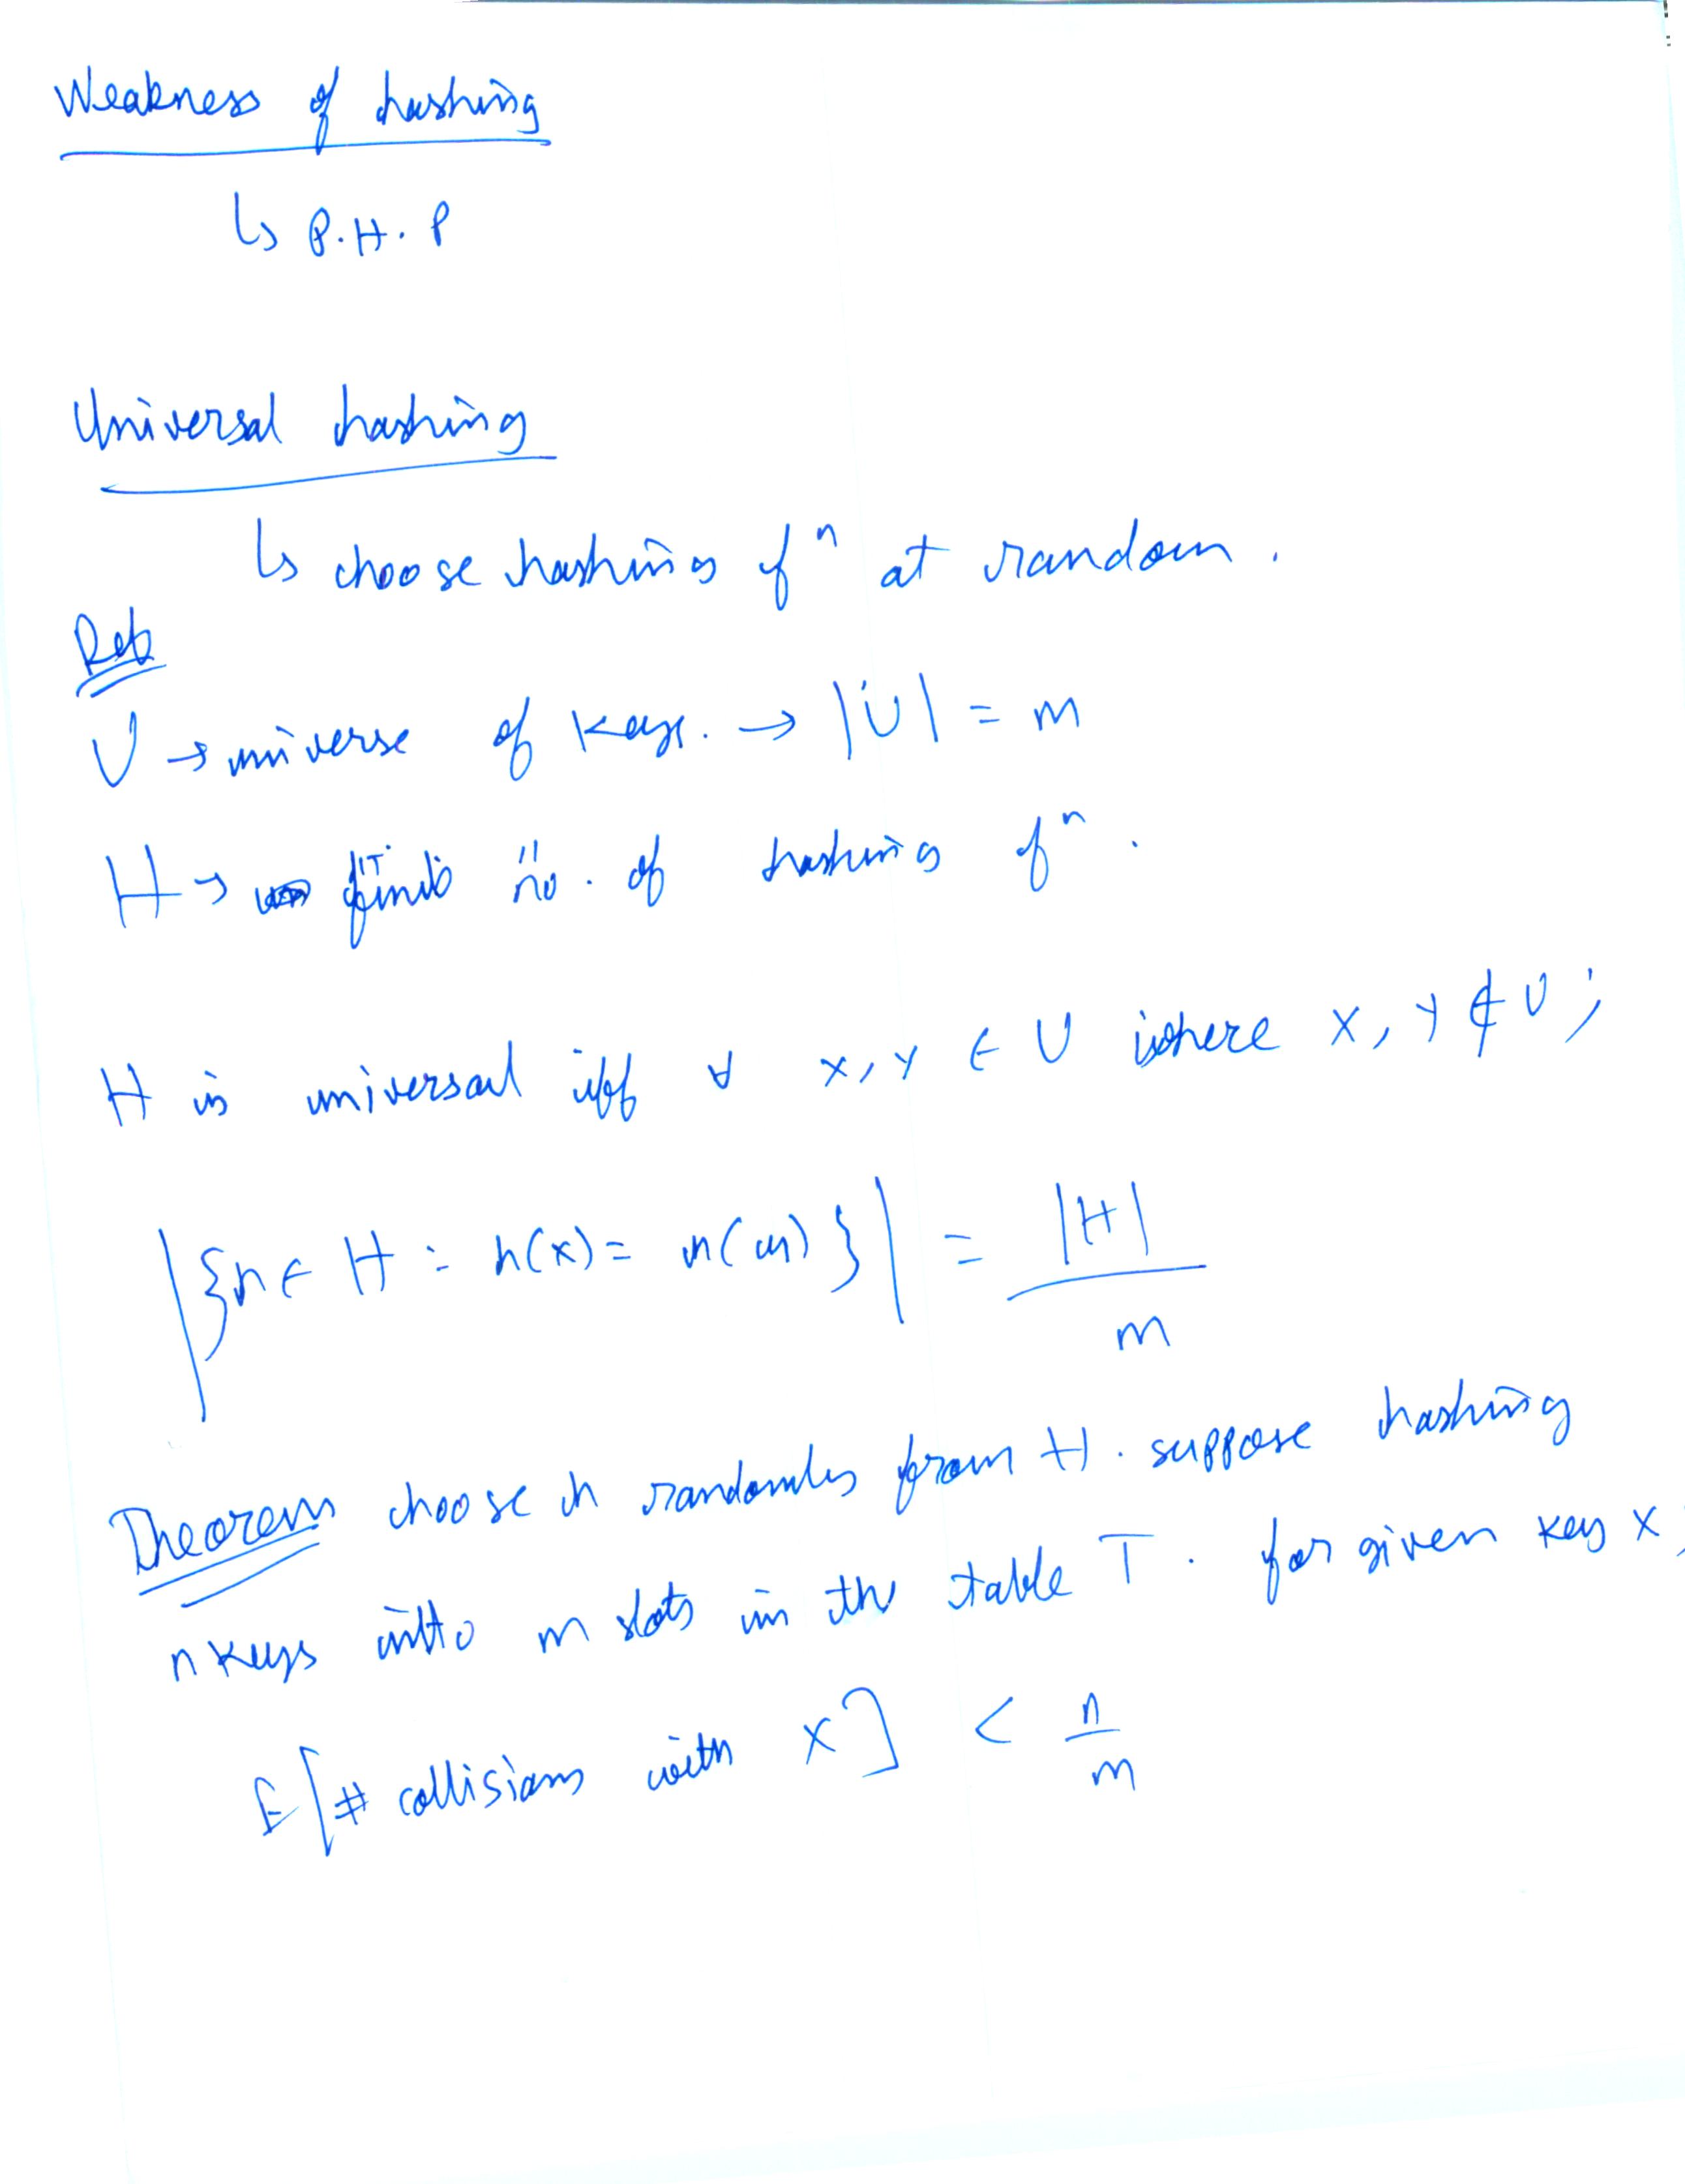 Weakness of hashing
↳ P.H.P
Universal hashing
↳ choose hashing fⁿ at random.
Def
U → universe of keys. → |U| = m
H → finite no. of hashing fⁿ.
H is universal iff ∀ x, y ∈ U where x, y ∉ U;
|{h ∈ H : h(x) = h(y)}| = |H| / m
Theorem choose h randomly from H. suppose hashing
n keys into m slots in the table T. for given key x,
E[# collisions with x] < n/m